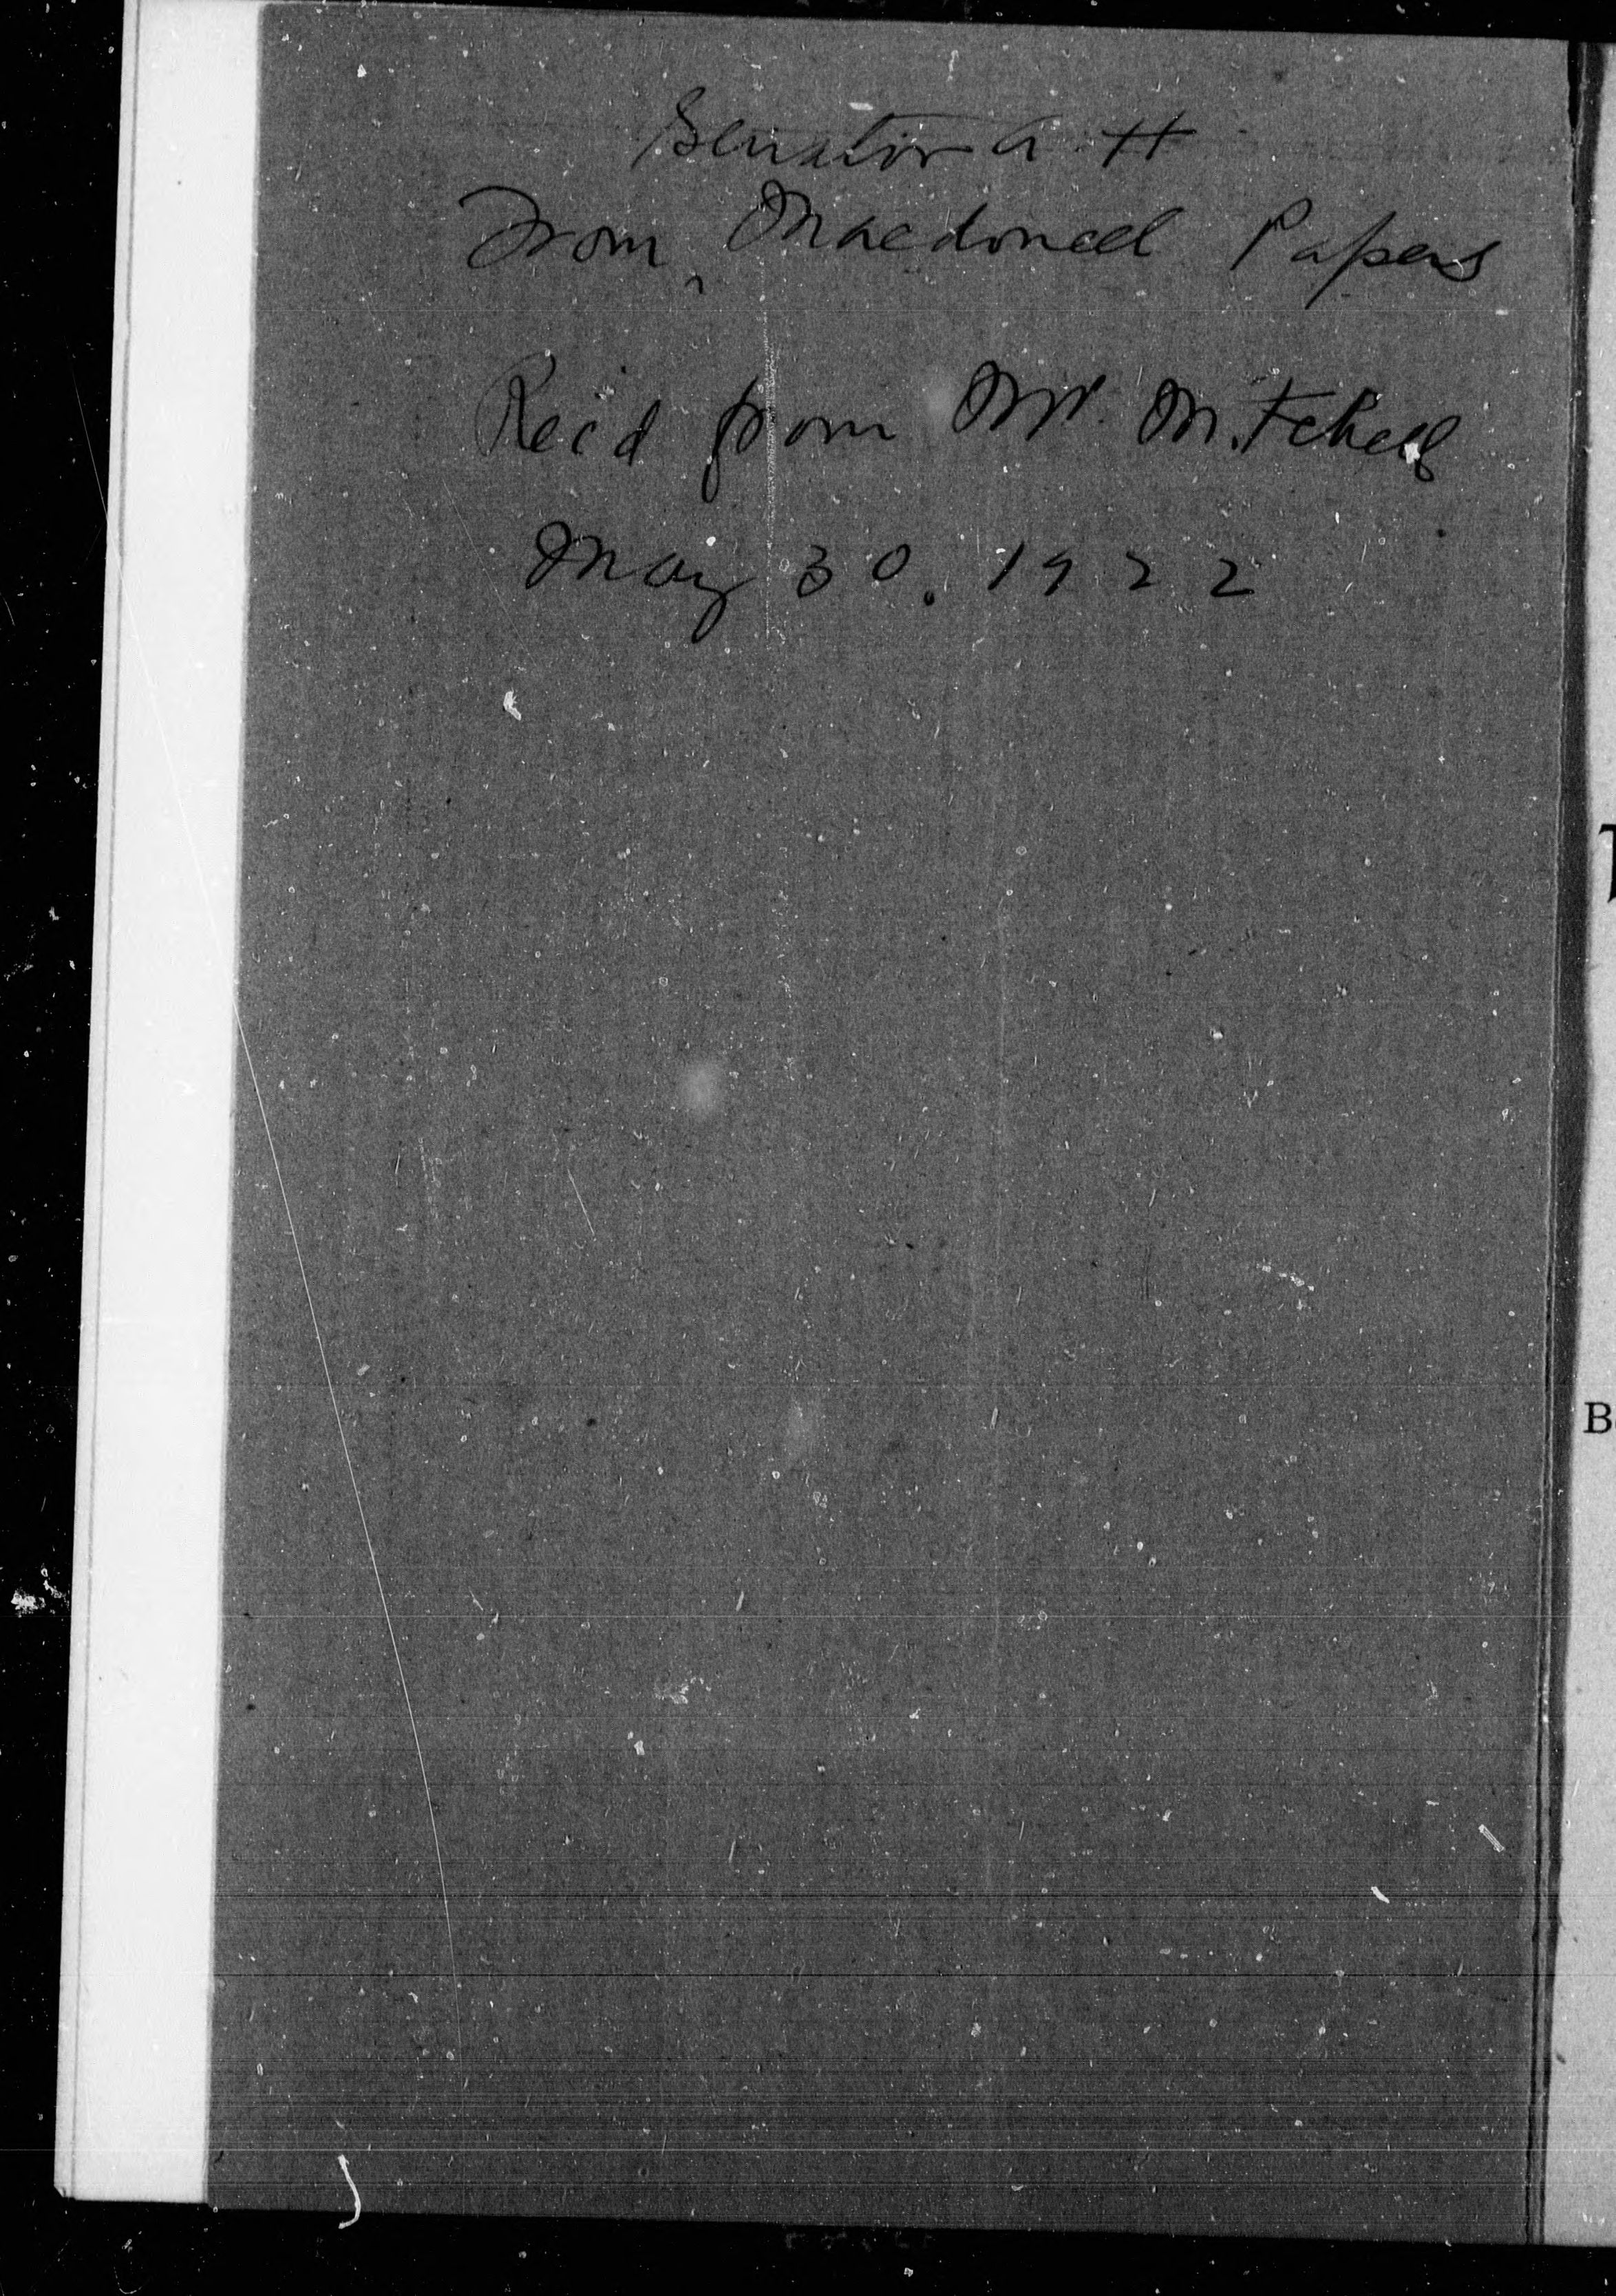 Senator A. H
From ‸ Macdonell Papers
Rec'd from Mr. Mitchell
May 30. 1922
B